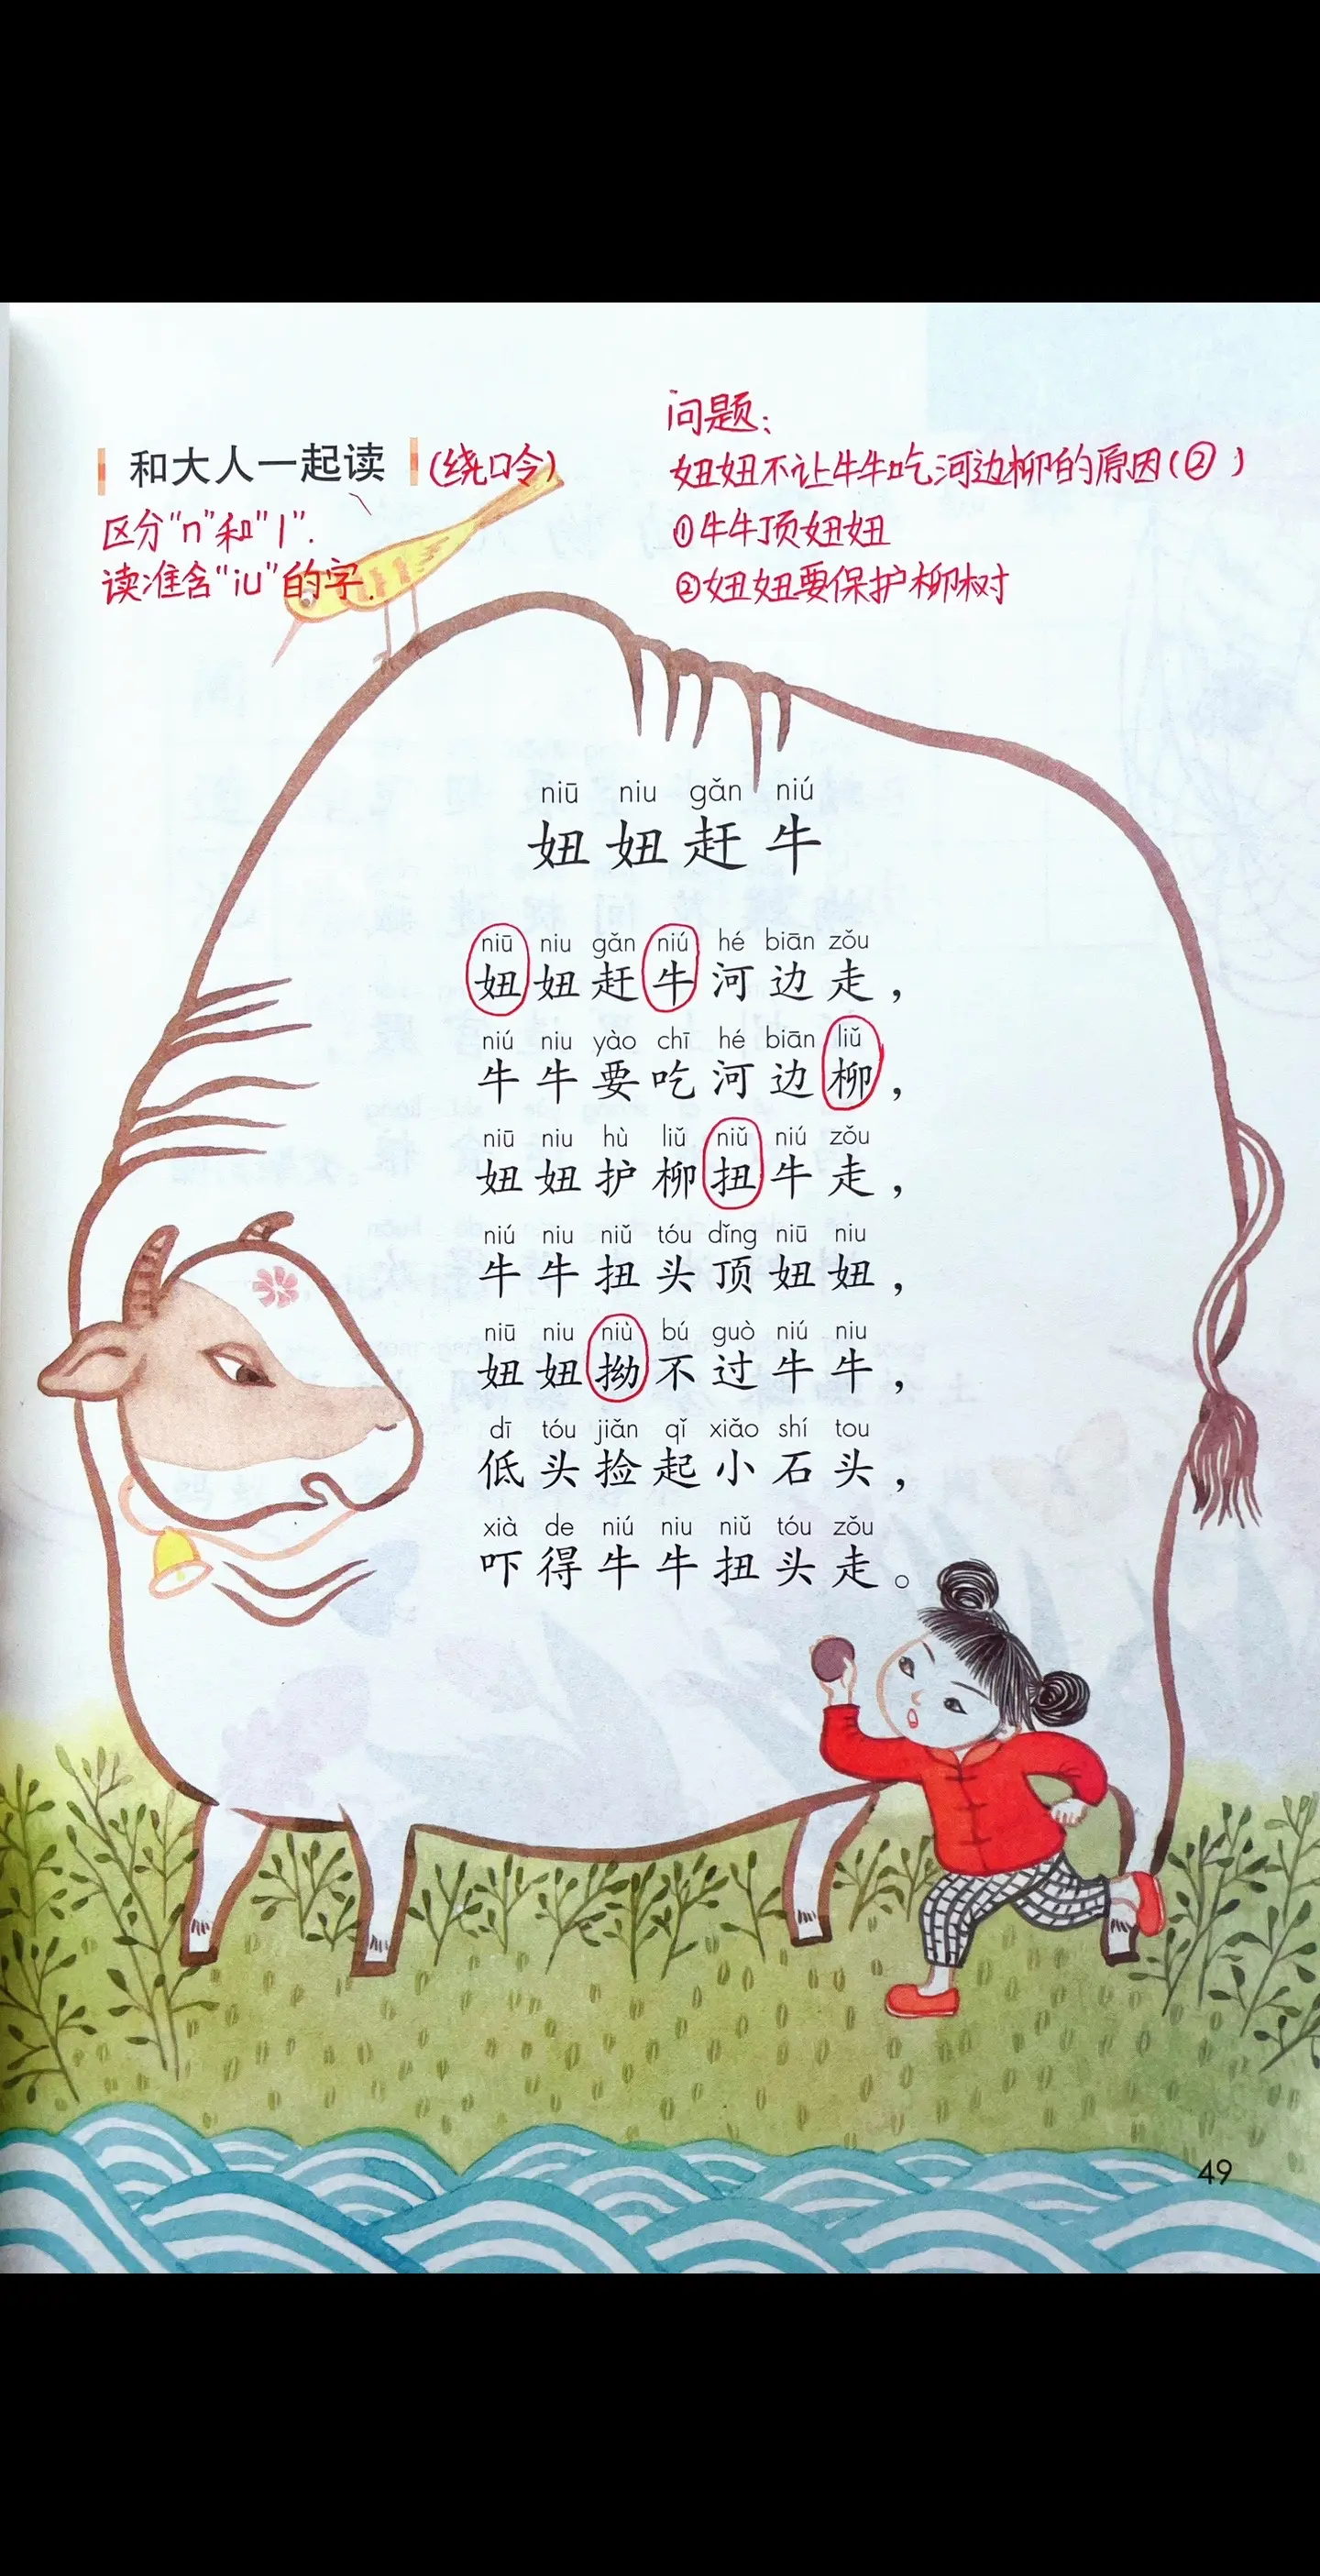 问题：
和大人一起读（绕口令）
妞妞不让牛牛吃河边柳的原因（②）
区分“n”和“l”.
①牛牛顶妞妞
读准含“iu”的字.
②妞妞要保护柳树
niū niu gǎn niú
妞妞赶牛
niū niu gǎn niú hé biān zǒu
妞妞赶牛河边走，
niú niu yào chī hé biān liǔ
牛牛要吃河边柳，
niū niu hù liǔ niǔ niú zǒu
妞妞护柳扭牛走，
niú niu niǔ tóu dǐng niū niu
牛牛扭头顶妞妞，
niū niu niù bú guò niú niu
妞妞拗不过牛牛，
dī tóu jiǎn qǐ xiǎo shí tou
低头捡起小石头，
xià de niú niu niǔ tóu zǒu
吓得牛牛扭头走。
49